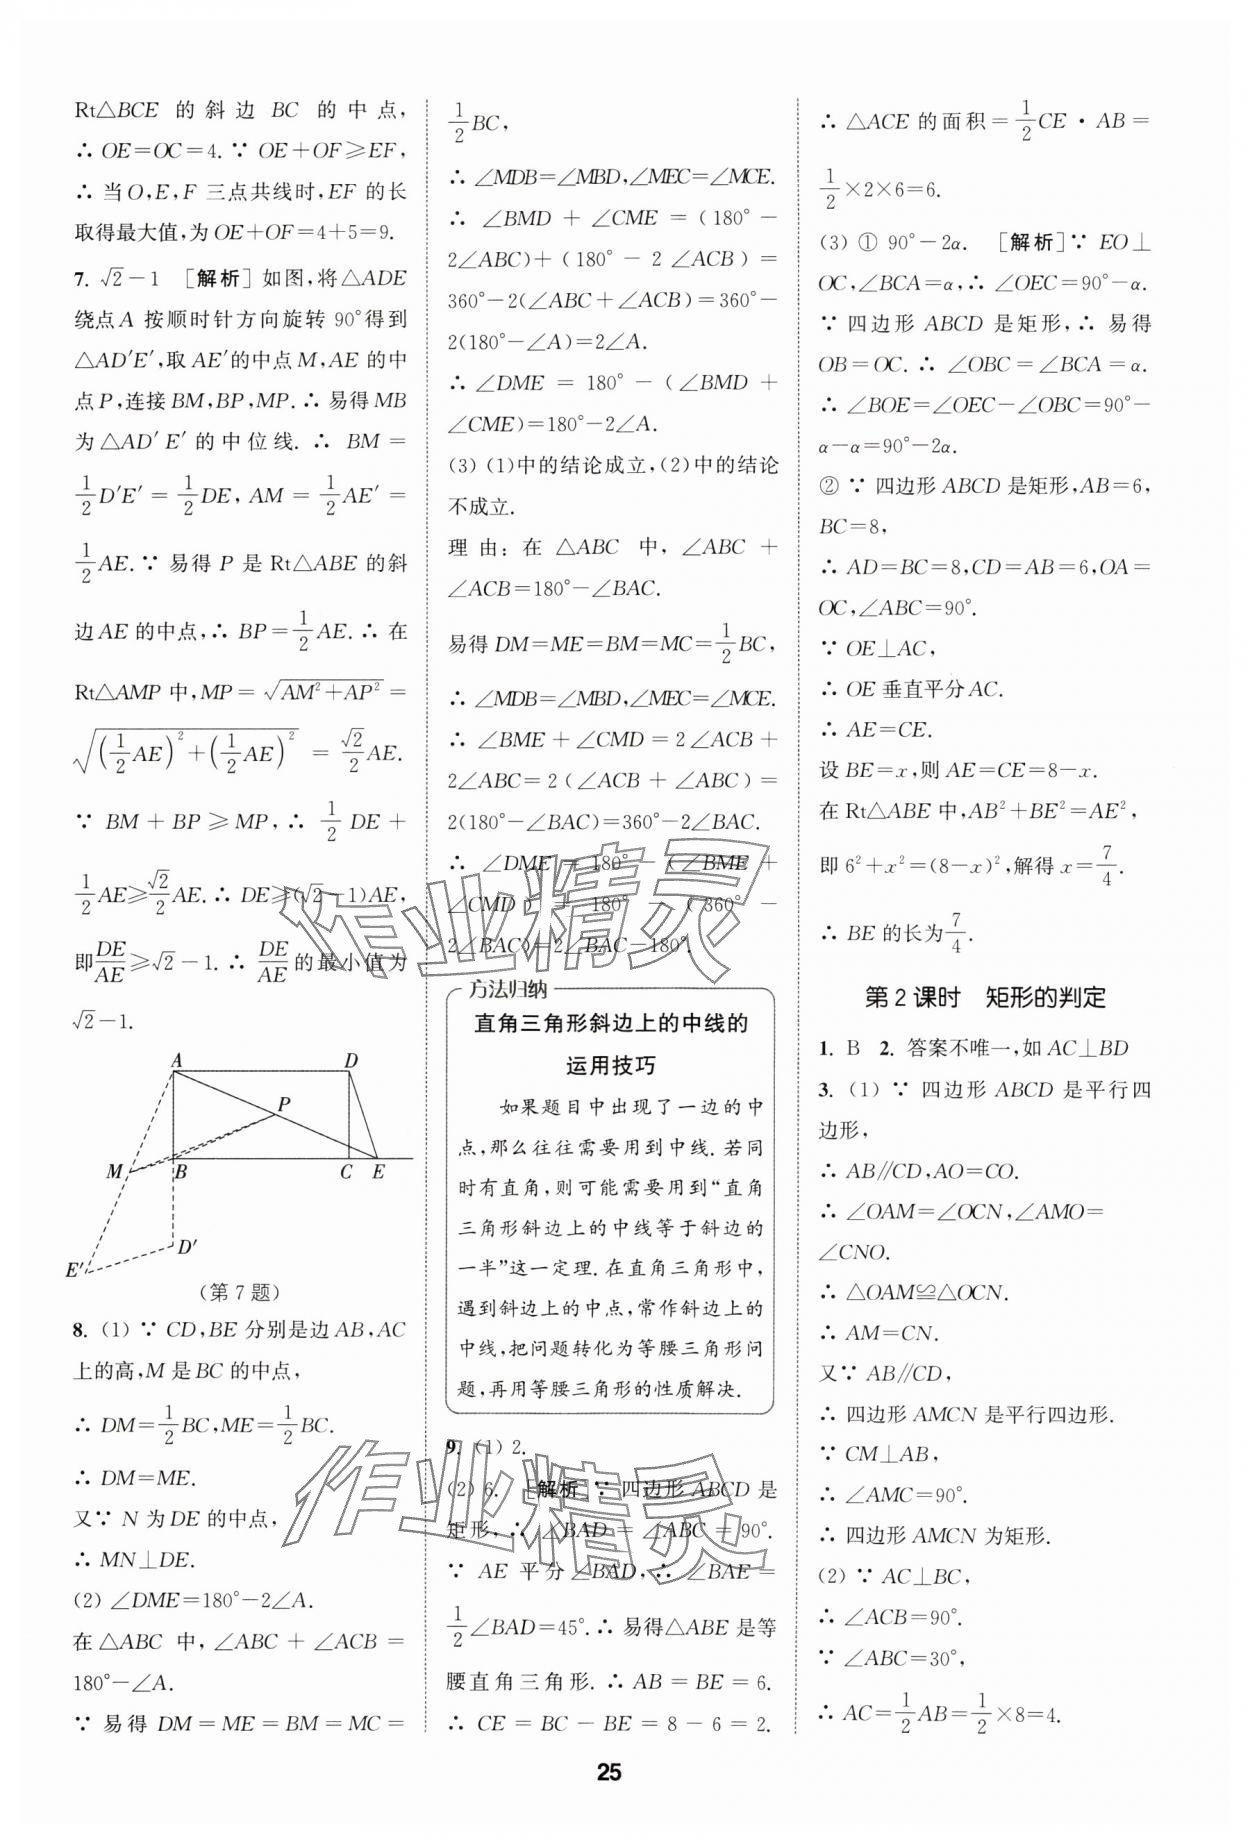 Rt△BCE 的斜边 BC 的中点,
∴ OE=OC=4. ∵ OE+OF≥EF,
∴ 当 O,E,F 三点共线时,EF 的长
取得最大值,为 OE+OF=4+5=9.
7. √2-1 [解析]如图,将△ADE
绕点 A 按顺时针方向旋转 90°得到
△AD′E′,取 AE′的中点 M,AE 的中
点 P,连接 BM,BP,MP. ∴ 易得 MB
为△AD′E′的中位线. ∴ BM=
1/2 D′E′=1/2 DE,AM=1/2 AE′=
1/2 AE. ∵ 易得 P 是 Rt△ABE 的斜
边 AE 的中点,∴ BP=1/2 AE. ∴ 在
Rt△AMP 中,MP=√(AM²+AP²)=
√((1/2 AE)²+(1/2 AE)²)=√2/2 AE.
∵ BM+BP≥MP,∴ 1/2 DE+
1/2 AE≥√2/2 AE. ∴ DE≥(√2-1)AE,
即 DE/AE≥√2-1. ∴ DE/AE 的最小值为
√2-1.
A D
P
M B C E
D′
E′
(第 7 题)
8. (1) ∵ CD,BE 分别是边 AB,AC
上的高,M 是 BC 的中点,
∴ DM=1/2 BC,ME=1/2 BC.
∴ DM=ME.
又∵ N 为 DE 的中点,
∴ MN⊥DE.
(2) ∠DME=180°-2∠A.
在△ABC 中,∠ABC+∠ACB=
180°-∠A.
∵ 易得 DM=ME=BM=MC=
1/2 BC,
∴ ∠MDB=∠MBD,∠MEC=∠MCE.
∴ ∠BMD+∠CME=(180°-
2∠ABC)+(180°-2∠ACB)=
360°-2(∠ABC+∠ACB)=360°-
2(180°-∠A)=2∠A.
∴ ∠DME=180°-(∠BMD+
∠CME)=180°-2∠A.
(3) (1)中的结论成立,(2)中的结论
不成立.
理由:在△ABC 中,∠ABC+
∠ACB=180°-∠BAC.
易得 DM=ME=BM=MC=1/2 BC,
∴ ∠MDB=∠MBD,∠MEC=∠MCE.
∴ ∠BME+∠CMD=2∠ACB+
2∠ABC=2(∠ACB+∠ABC)=
2(180°-∠BAC)=360°-2∠BAC.
∴ ∠DME=180°-(∠BME+
∠CMD)=180°-(360°-
2∠BAC)=2∠BAC-180°.
方法归纳
直角三角形斜边上的中线的
运用技巧
如果题目中出现了一边的中
点,那么往往需要用到中线. 若同
时有直角,则可能需要用到“直角
三角形斜边上的中线等于斜边的
一半”这一定理. 在直角三角形中,
遇到斜边上的中点,常作斜边上的
中线,把问题转化为等腰三角形问
题,再用等腰三角形的性质解决.
9. (1) 2.
(2) 6. [解析]∵ 四边形 ABCD 是
矩形,∴ ∠BAD=∠ABC=90°.
∵ AE 平分∠BAD,∴ ∠BAE=
1/2∠BAD=45°. ∴ 易得△ABE 是等
腰直角三角形. ∴ AB=BE=6.
∴ CE=BC-BE=8-6=2.
∴ △ACE 的面积=1/2 CE·AB=
1/2×2×6=6.
(3) ① 90°-2α. [解析]∵ EO⊥
OC,∠BCA=α,∴ ∠OEC=90°-α.
∵ 四边形 ABCD 是矩形,∴ 易得
OB=OC. ∴ ∠OBC=∠BCA=α.
∴ ∠BOE=∠OEC-∠OBC=90°-
α-α=90°-2α.
② ∵ 四边形 ABCD 是矩形,AB=6,
BC=8,
∴ AD=BC=8,CD=AB=6,OA=
OC,∠ABC=90°.
∵ OE⊥AC,
∴ OE 垂直平分 AC.
∴ AE=CE.
设 BE=x,则 AE=CE=8-x.
在 Rt△ABE 中,AB²+BE²=AE²,
即 6²+x²=(8-x)²,解得 x=7/4.
∴ BE 的长为 7/4.
第 2 课时 矩形的判定
1. B 2. 答案不唯一,如 AC⊥BD
3. (1) ∵ 四边形 ABCD 是平行四
边形,
∴ AB∥CD,AO=CO.
∴ ∠OAM=∠OCN,∠AMO=
∠CNO.
∴ △OAM≌△OCN.
∴ AM=CN.
又∵ AB∥CD,
∴ 四边形 AMCN 是平行四边形.
∵ CM⊥AB,
∴ ∠AMC=90°.
∴ 四边形 AMCN 为矩形.
(2) ∵ AC⊥BC,
∴ ∠ACB=90°.
∵ ∠ABC=30°,
∴ AC=1/2 AB=1/2×8=4.
25
作业精灵
作业精灵